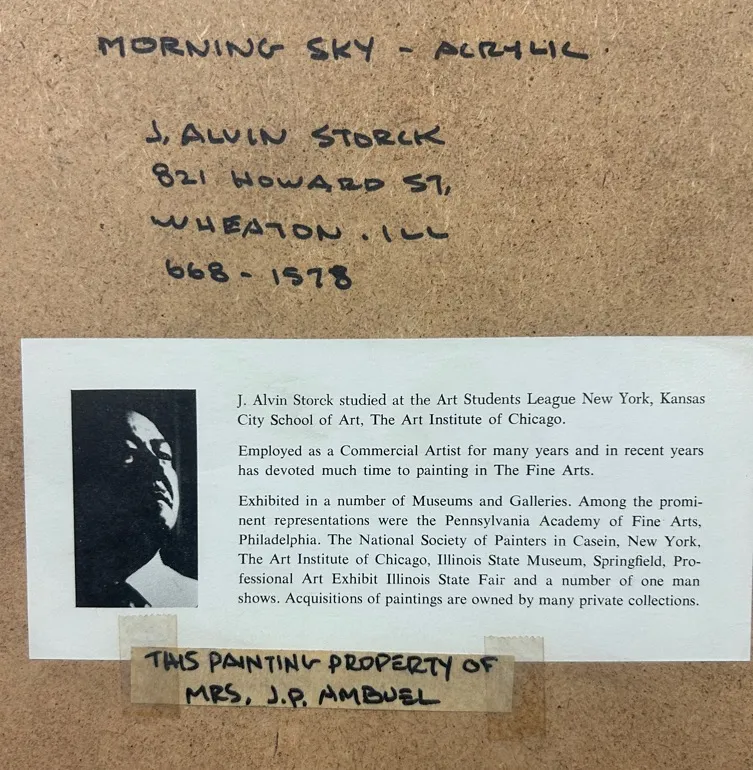 MORNING SKY - ACRYLIC
J. ALVIN STORCK
821 HOWARD ST,
WHEATON . ILL
668 - 1578
J. Alvin Storck studied at the Art Students League New York, Kansas
City School of Art, The Art Institute of Chicago.
Employed as a Commercial Artist for many years and in recent years
has devoted much time to painting in The Fine Arts.
Exhibited in a number of Museums and Galleries. Among the promi-
nent representations were the Pennsylvania Academy of Fine Arts,
Philadelphia. The National Society of Painters in Casein, New York,
The Art Institute of Chicago, Illinois State Museum, Springfield, Pro-
fessional Art Exhibit Illinois State Fair and a number of one man
shows. Acquisitions of paintings are owned by many private collections.
THIS PAINTING PROPERTY OF
MRS. J.P. AMBUEL